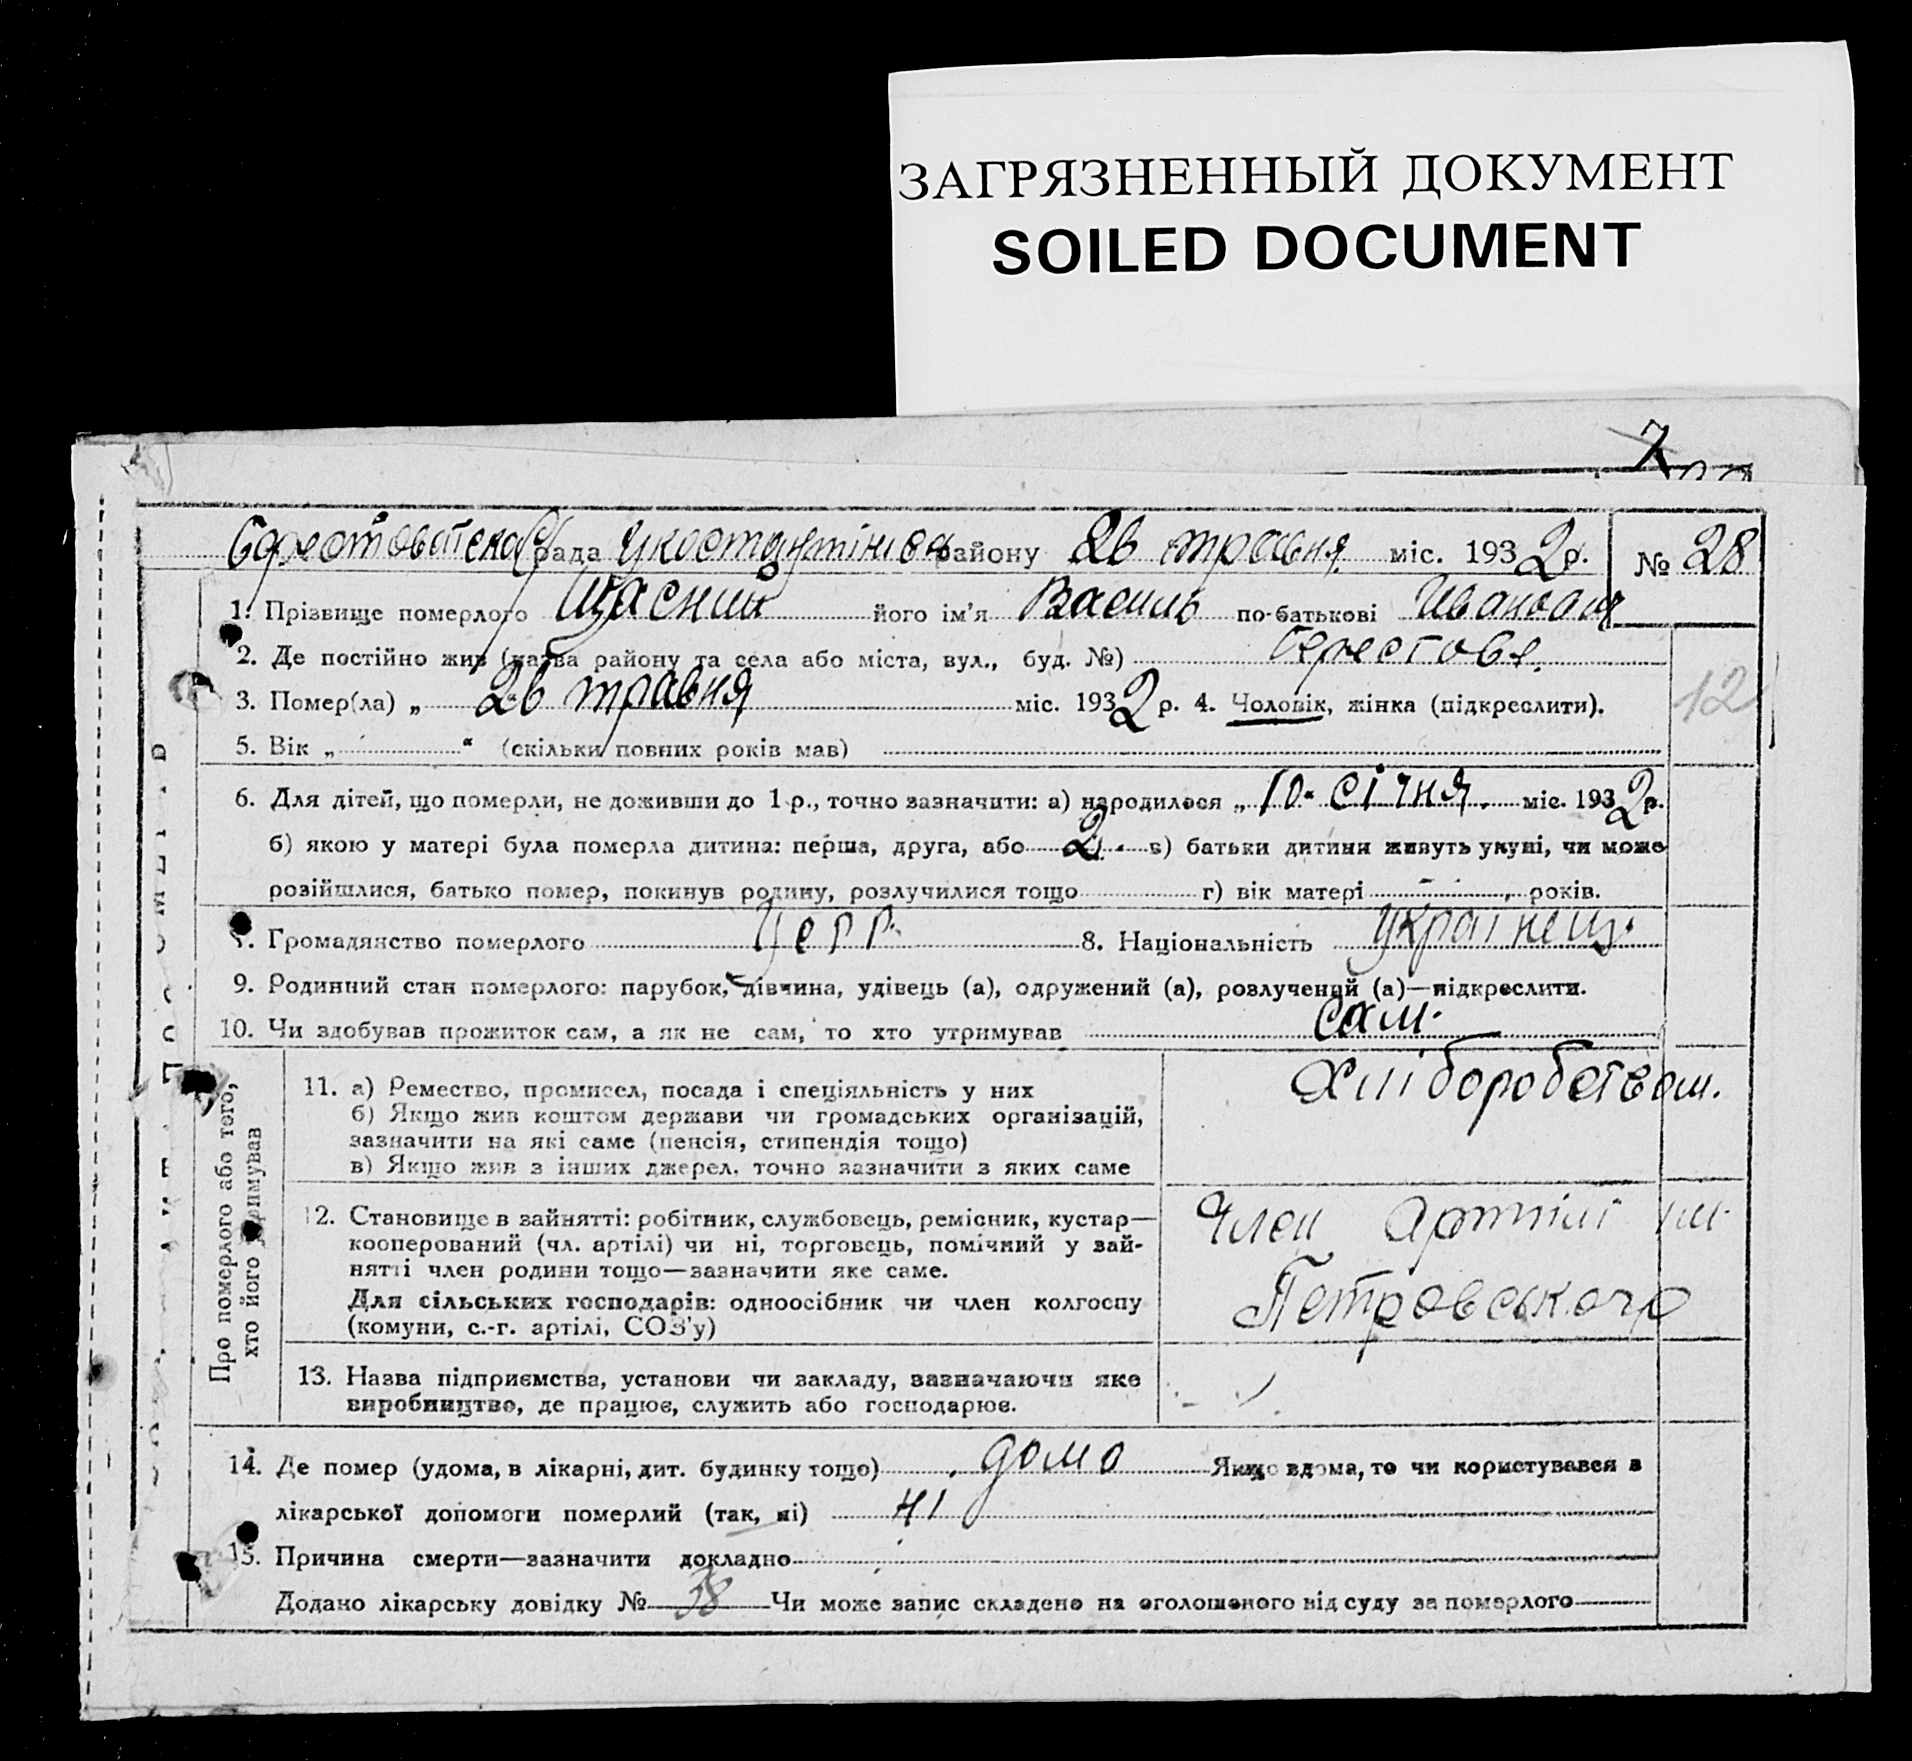 ЗАГРЯЗНЕННЫЙ ДОКУМЕНТ
SOILED DOCUMENT
7
рада району 26 травня міс. 1932 р. № 28
1. Прізвище померлого Щасний його ім'я Василь по-батькові Иванович
2. Де постійно жив (назва району та села або міста, вул., буд. №) Берестове.
12
3. Помер(ла) „ 26 травня міс. 1932 р. 4. Чоловік, жінка (підкреслити).
5. Вік „ “ (скільки повних років мав)
6. Для дітей, що померли, не доживши до 1 р., точно зазначити: а) народилося „ 10 січня. міс. 1932 р.
б) якою у матері була померла дитина: перша, друга, або 2. в) батьки дитини живуть укупі, чи може
розійшлися, батько помер, покинув родину, розлучилися тощо г) вік матері років.
7. Громадянство померлого УСРР. 8. Національність українец.
9. Родинний стан померлого: парубок, дівчина, удівець (а), одружений (а), розлучений (а)—підкреслити.
10. Чи здобував прожиток сам, а як не сам, то хто утримував сам.
Про померлого або того, хто його утримував
11. а) Ремество, промисел, посада і спеціяльність у них Хліборобством.
б) Якщо жив коштом держави чи громадських організацій,
зазначити на які саме (пенсія, стипендія тощо)
в) Якщо жив з інших джерел, точно зазначити з яких саме
12. Становище в зайнятті: робітник, службовець, ремісник, кустар— Член Артілі им.
кооперований (чл. артілі) чи ні, торговець, помічний у зай-
нятті член родини тощо—зазначити яке саме. Петровського
Для сільських господарів: одноосібник чи член колгоспу
(комуни, с.-г. артілі, СОЗ'у)
13. Назва підприємства, установи чи закладу, зазначаючи яке
виробництво, де працює, служить або господарює.
14. Де помер (удома, в лікарні, дит. будинку тощо) дома Якщо вдома, то чи користувався з
лікарської допомоги померлий (так, ні) ні
15. Причина смерти—зазначити докладно
Додано лікарську довідку № 38 Чи може запис складено на оголошеного від суду за померлого